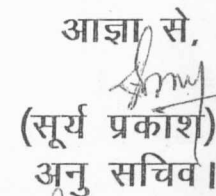 आज्ञा से,
(सूर्य प्रकाश)
अनु सचिव।